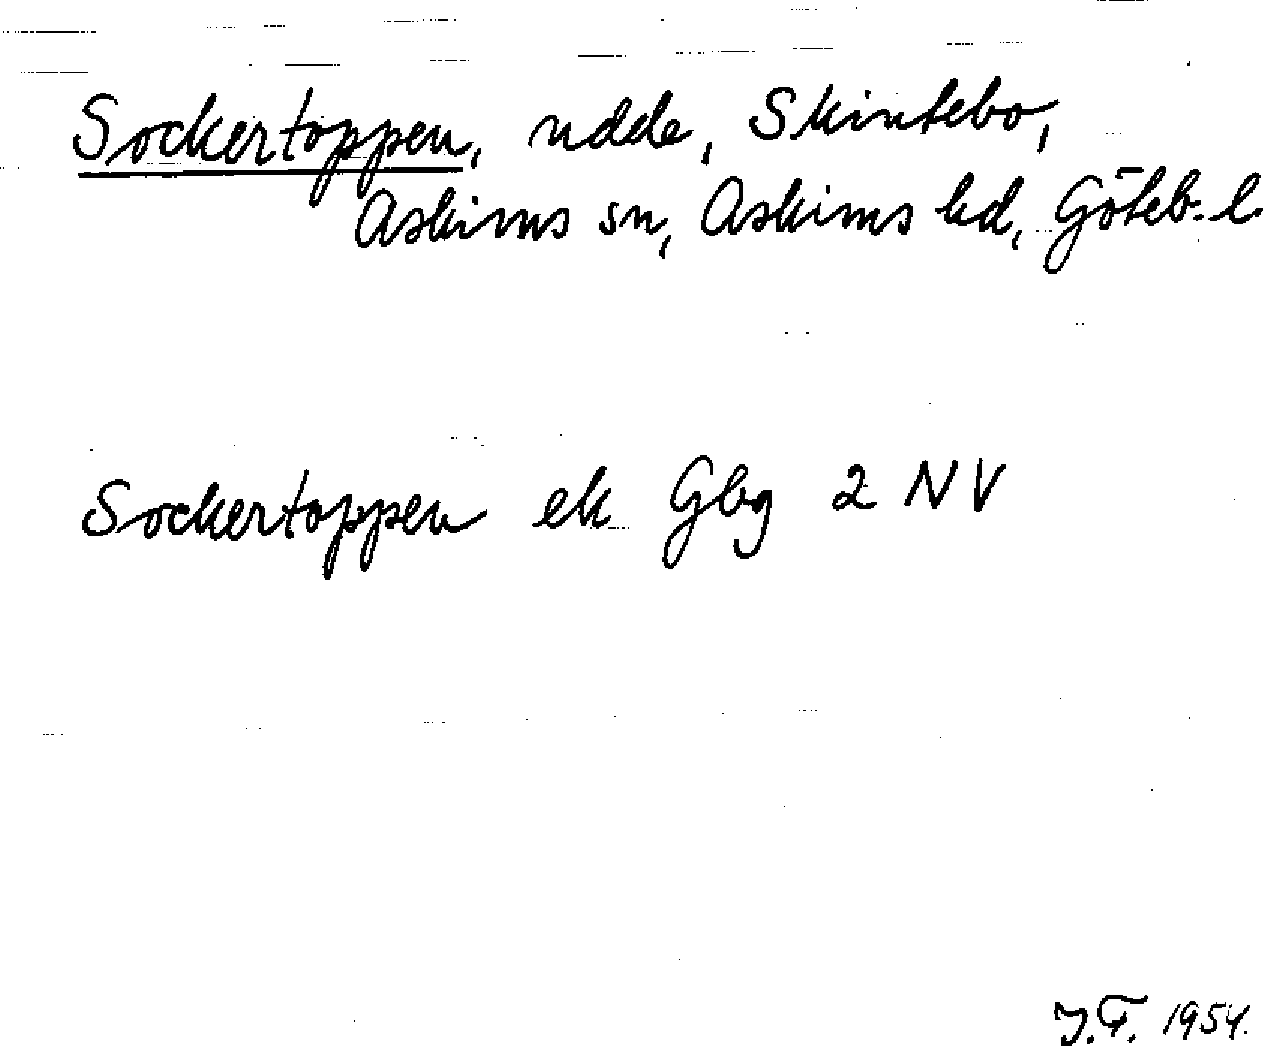 Sockertoppen, udde, Skintebo,
Askims sn, Askims hd, Göteb. l.
Sockertoppen ek Gbg 2 NV
J.F. 1954.